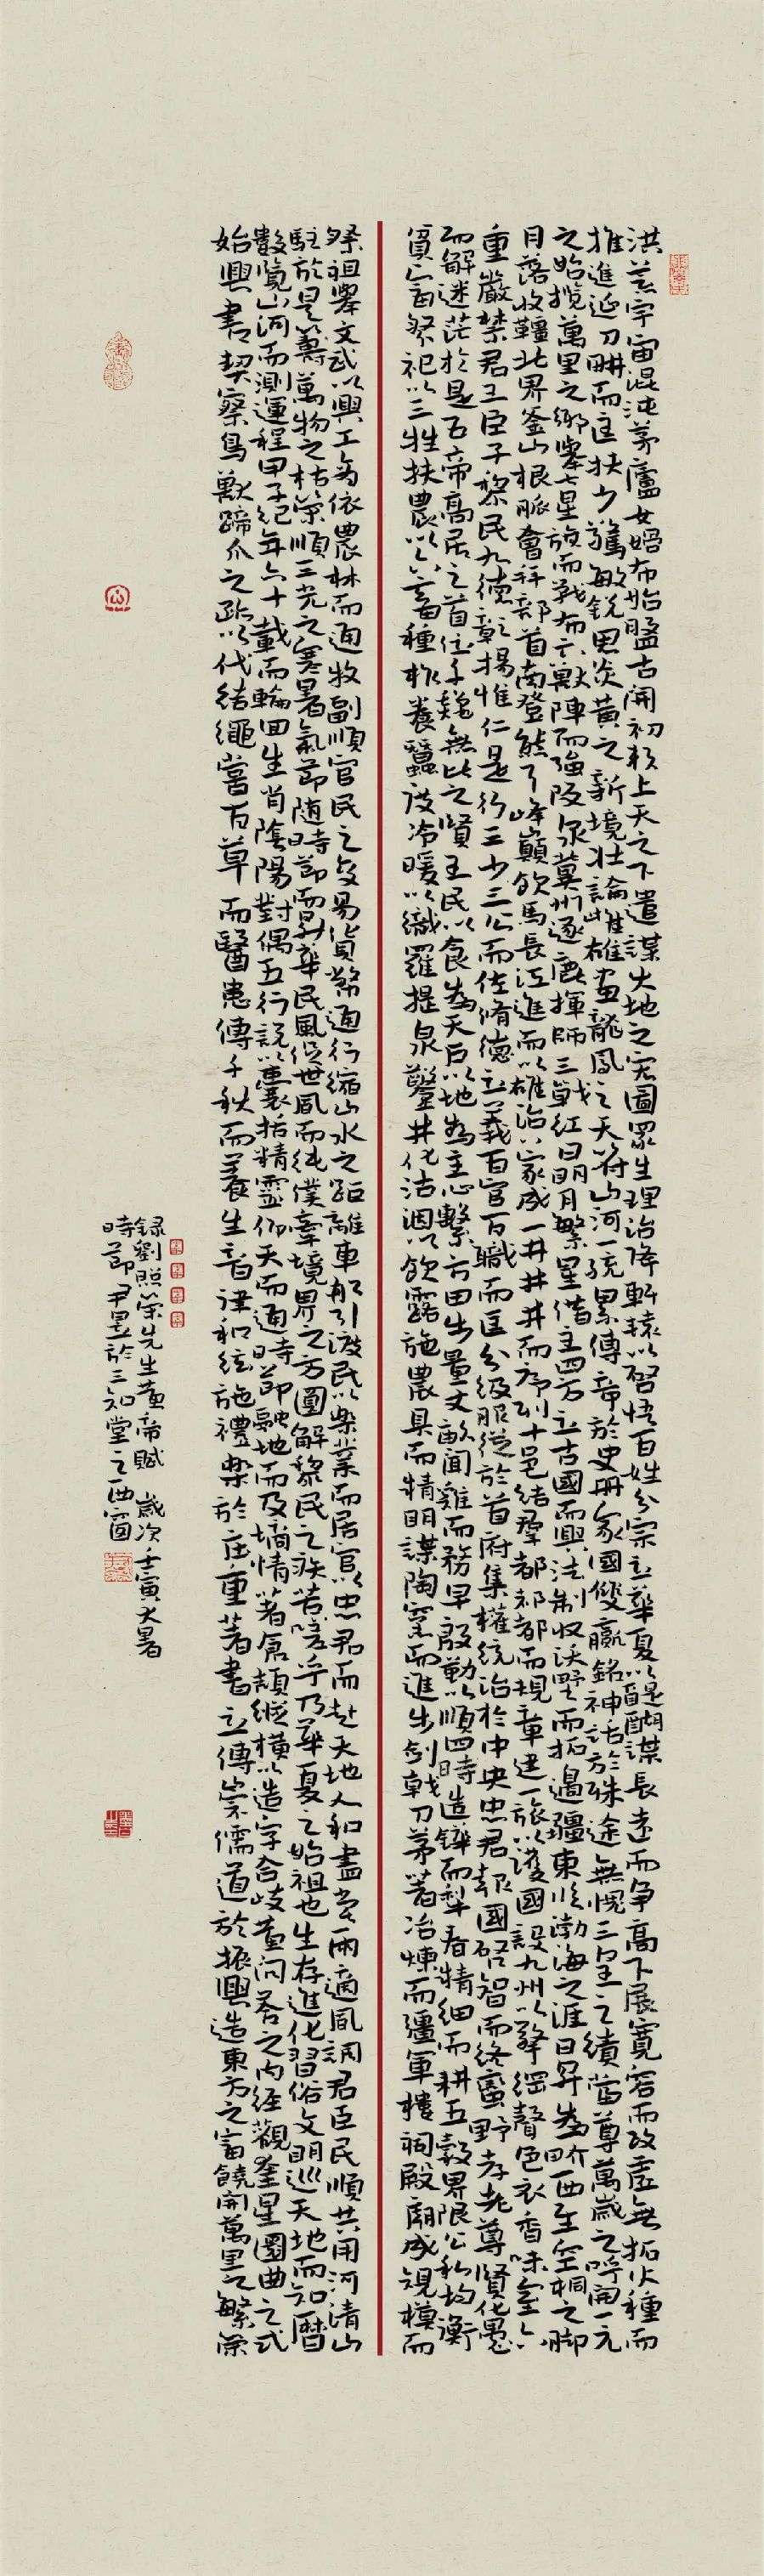 洪荒宇宙混沌茅廬女媧布始盤古開初秉上天之下遣謀大地之宏圖眾生理治降軒轅以啓悟百姓分宗立華夏以醍醐謀長遠而爭高下展寬容而改虛無拓火種而
推進延刀耕而匡扶少驚敏銳思炎黃之新境壯論雄畫龍鳳之天符山河一統累傳帝於史冊家國雙贏銘神話於殊途無愧三皇之績當尊萬歲之呼開一元
之始攬萬里之鄉舉七星旗而戰布六獸陣而強阪泉冀州逐鹿揮師三戰紅日明月繁星借主四方立古國而興法制收沃野而拓邊疆東臨渤海之涯日昇為界西至空桐之腳
月落收韁北界釜山根脈會拜部首南登熊耳峰巔飲馬長江進而以雄治八家成一井井井而序列十邑結群都都都而規章建一旅以護國設九州以擎綱聲色衣香味室六
重嚴禁君王臣子黎民九德彰揚惟仁是行三少三公而佐脩德立義百官百職而匡分級服從於首府集權統治於中央忠君報國啓智而終蠻野孝老尊賢化愚
而解迷茫於是五帝高居之首位千巍無比之賢王民以食為天后以地為主心繫方田步量丈畝聞雞而務早殷勤以順四時造鏵而犁春精細而耕五穀界限公私均衡
貧富祭祀以三牲扶農以六畜種柞養蠶設冷暖以織羅提泉鑿井化沽涸以飲露施農具而精明謀陶窯而進步劍戟刀茅著冶煉而疆軍樓祠殿廟成規模而
祭祖舉文武以興工為依農林而通牧副順官民之交易貨幣通行縮山水之距離車船引渡民以樂業而居官以忠君而赴天地人和盡雲雨適風調君臣民順共用河清山
駐於是籌萬物之枯榮順三光之寒暑氣節隨時節而昇華民風從世風而純僕牽境界之方圓解黎民之疾苦嗟乎乃華夏之始祖也生存進化習俗文明巡天地而知曆
數覽山河而測運程甲子紀年六十載而輪回生肖陰陽對偶五行說以囊括精靈仰天而通時節融地而及墒情著倉頡縱橫以造字合岐黃問答之內經觀奎星圜曲之式
始興書契察鳥獸蹄爪之跡以代結繩嘗百草而醫患傳千秋而養生音律和弦施禮樂於庄重著書立傳崇儒道於振興造東方之富饒開萬里之繁榮
錄劉照榮先生黃帝賦 歲次壬寅大暑
時節尹墨於三知堂之西窗